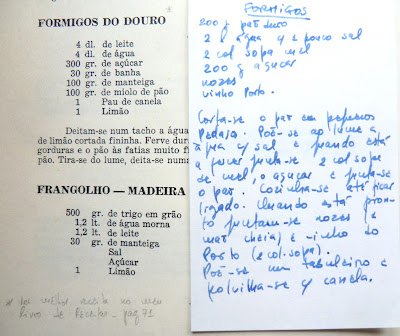 FORMIGOS DO DOURO
4 dl. de leite
4 dl. de água
300 gr. de açúcar
30 gr. de banha
100 gr. de manteiga
100 gr. de miolo de pão
1 Pau de canela
1 Limão
Deitam-se num tacho a água
de limão cortada fininha. Ferve dura
gorduras e o pão às fatias muito fi
pão. Tira-se do lume, deita-se numa
FRANGOLHO — MADEIRA
500 gr. de trigo em grão
1,2 lt. de água morna
1,2 lt. de leite
30 gr. de manteiga
Sal
Açúcar
1 Limão
receita no meu
livro de Receitas - pag 71
FORMIGOS
200 g pão duro
2 l água c/ 1 pouco sal
2 col sopa mel
200 g açucar
nozes
vinho Porto.
Corta-se o pão em pequenos
pedaços. Põe-se ao lume a
água c/ sal e quando está
a ferver junta-se 2 col sopa
de mel, o açucar e junta-se
o pão. Cozinha-se até ficar
ligado. Quando está pron-
to juntam-se nozes (1
mão cheia) e vinho do
Porto (2 col. sopa).
Põe-se num tabuleiro e
polvilha-se c/ canela.